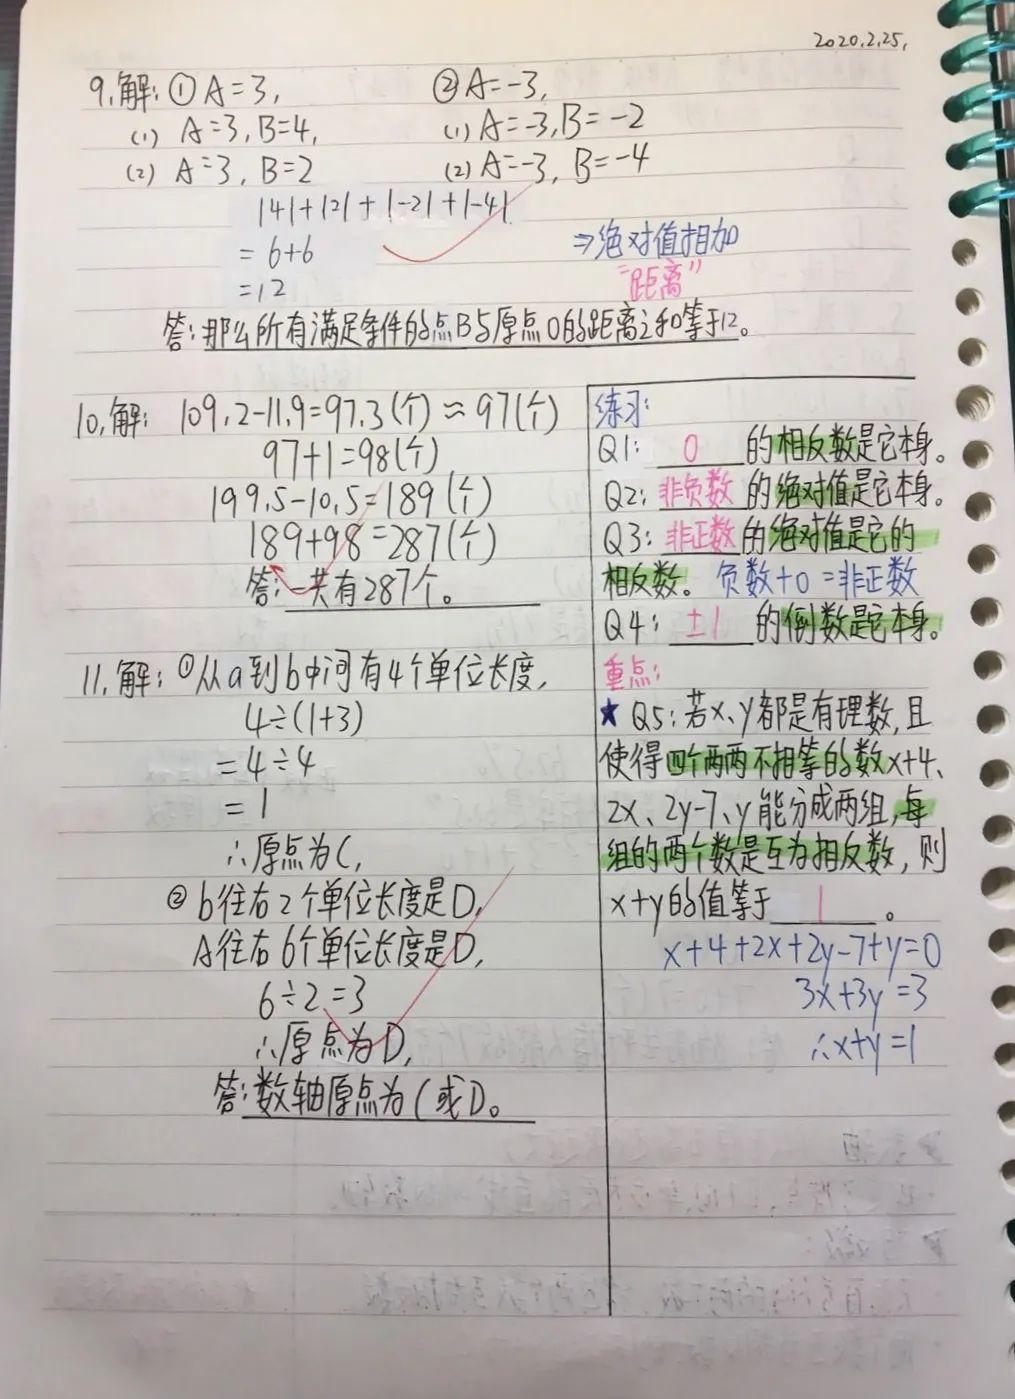 2020.2.25.
9.解:①A=3,
②A=-3,
(1) A=3,B=4,
(1)A=-3,B=-2
(2) A=3,B=2
(2)A=-3,B=-4
|4|+|2|+|-2|+|-4|
=6+6
=12
⇒绝对值相加
"距离"
答:那么所有满足条件的点B与原点O的距离之和等于12。
10.解: 109.2-11.9=97.3(个)≈97(个)
97+1=98(个)
199.5-10.5=189(个)
189+98=287(个)
答:一共有287个。
11.解:①从a到b中间有4个单位长度,
4÷(1+3)
=4÷4
=1
∴原点为C,
②b往右2个单位长度是D,
A往右6个单位长度是D,
6÷2=3
∴原点为D,
答:数轴原点为C或D。
练习:
Q1: 0 的相反数是它本身。
Q2:非负数的绝对值是它本身。
Q3:非正数的绝对值是它的
相反数。 负数+0=非正数
Q4: ±1 的倒数是它本身。
重点:
★ Q5:若x、y都是有理数,且
使得四个两两不相等的数x+4、
2x、2y-7、y能分成两组,每
组的两个数是互为相反数,则
x+y的值等于 1 。
x+4+2x+2y-7+y=0
3x+3y=3
∴x+y=1